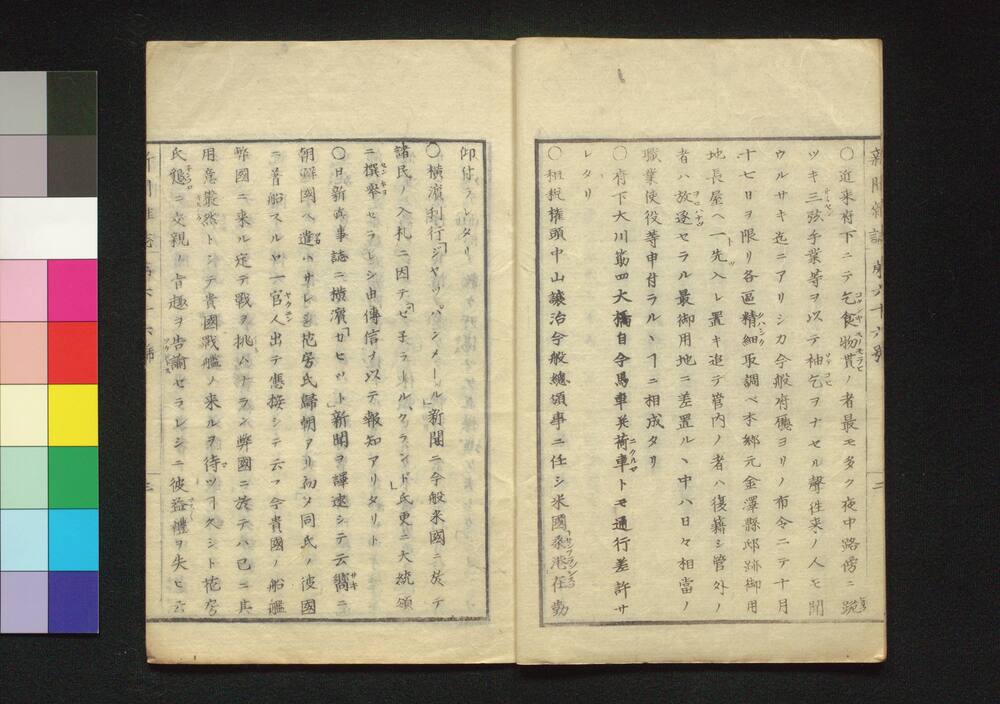 新聞雜誌 第六十六號 二
〇近来府下ニテ乞食物貰ノ者最モ多ク夜中路傍ニ跪
ツキ三弦手業等ヲ以テ袖乞ヲナセル聲徃来ノ人モ聞
ウルサキ迄ニアリシカ今般府廳ヨリノ布令ニテ十月
十七日ヲ限リ各區精細取調ベ本郷元金澤縣邸跡御用
地長屋ヘ一先入レ置キ追テ管内ノ者ハ復籍シ管外ノ
者ハ放逐セラル最御用地ニ差置ルヽ中ハ日々相當ノ
職業使役等申付ラルヽヿニ相成タリ
〇府下大川筋四大橋自今馬車並荷車トモ通行差許サ
レタリ
〇租税権頭中山譲治今般總領事ニ任シ米國桑港在勤
仰付ラレタリ
〇横濱刊行「ジヤッパンメール」新聞ニ今般米國ニ於テ
諸民ノ入札ニ因テ「ゼ子ラール、クランド」氏更ニ大統領
ニ撰挙セラレシ由傳信ノ以テ報知アリタリト
〇日新眞事誌ニ横濱「カセット」新聞ヲ譯述シテ云嚮ニ
朝鮮國ヘ遣ハサレシ花房氏歸朝アリ初メ同氏ノ彼國
ニ着船スルヤ一官人出テ應接シテ云フ今貴國ノ船艦
弊國ニ来ル定テ戰ヲ挑ムナラン弊國ニ於テハ已ニ兵
用意嚴然トシテ貴國戰艦ノ来ルヲ待ツヿ久シト花房
氏懇ニ交親ノ旨趣ヲ告諭セラレシニ彼益禮ヲ失ヒ云
新聞雜誌 第六十六號 三